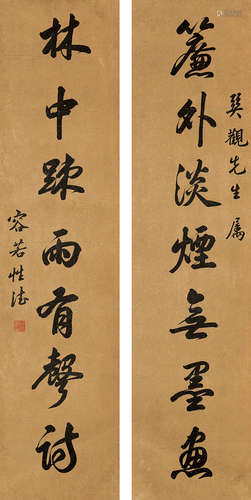 巽觀先生属
簾外淡煙無墨畫
林中踈雨有聲詩
容若性德